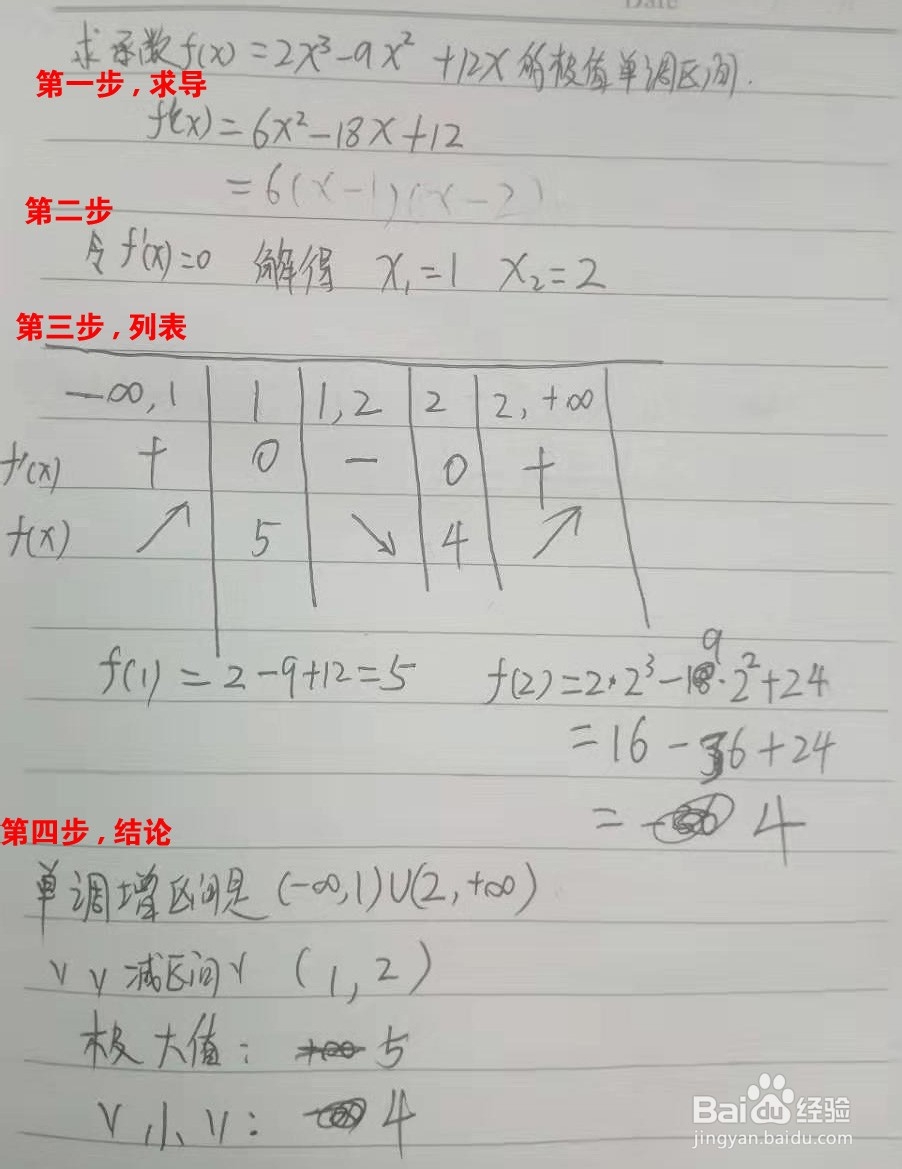 Date
求函数f(x)=2x³-9x²+12x的极值单调区间.
第一步，求导
f'(x)=6x²-18x+12
=6(x-1)(x-2)
第二步
令f'(x)=0 解得 x₁=1 x₂=2
第三步，列表
-∞,1 1 1,2 2 2,+∞
f'(x) + 0 - 0 +
f(x) ↗ 5 ↘ 4 ↗
f(1)=2-9+12=5 f(2)=2·2³-9·2²+24
=16-36+24
=4
第四步，结论
单调增区间是(-∞,1)∪(2,+∞)
〃〃减区间〃(1,2)
极大值：5
〃小〃：4
Baidu经验
jingyan.baidu.com